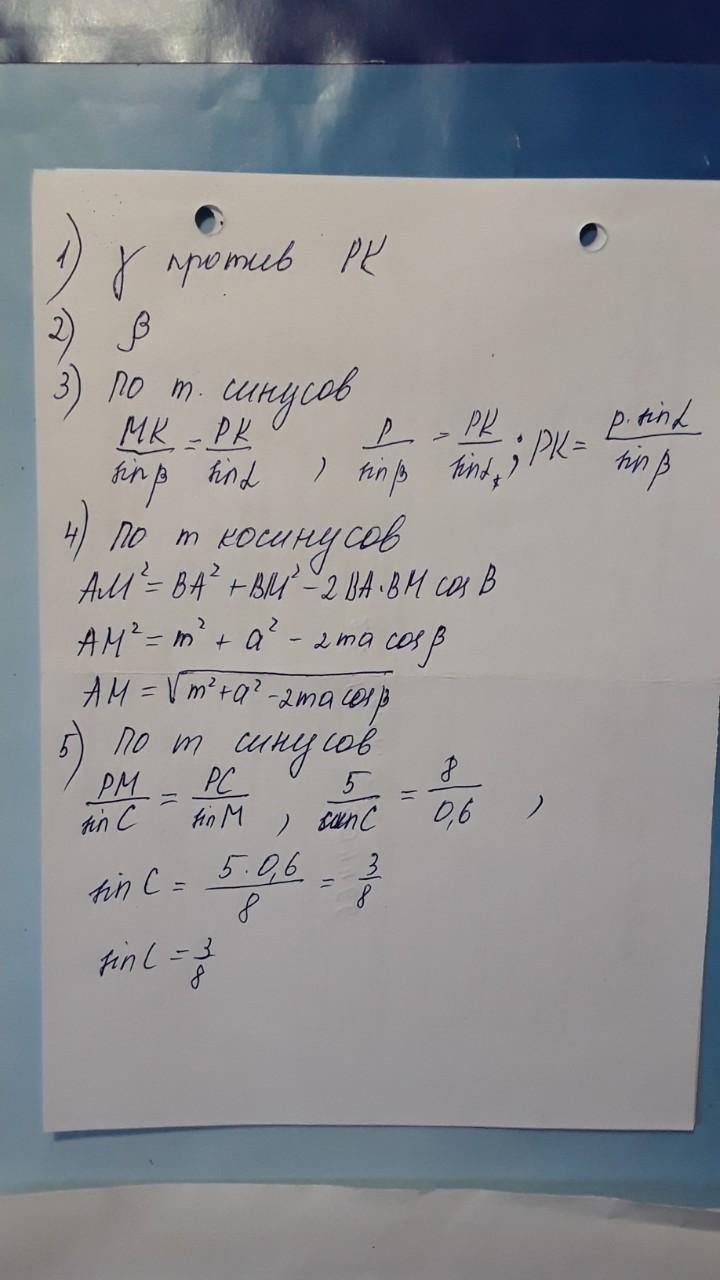 1) γ против PK
2) β
3) по т. синусов
MK/sinβ = PK/sinα , P/sinβ = PK/sinα ; PK = p·sinα/sinβ
4) по т косинусов
AM² = BA² + BM² - 2BA·BM cos B
AM² = m² + a² - 2ma cosβ
AM = √(m²+a²-2ma cosβ)
5) по т синусов
PM/sin C = PC/sin M , 5/sin C = 8/0,6 ,
sin C = 5·0,6/8 = 3/8
sin C = 3/8